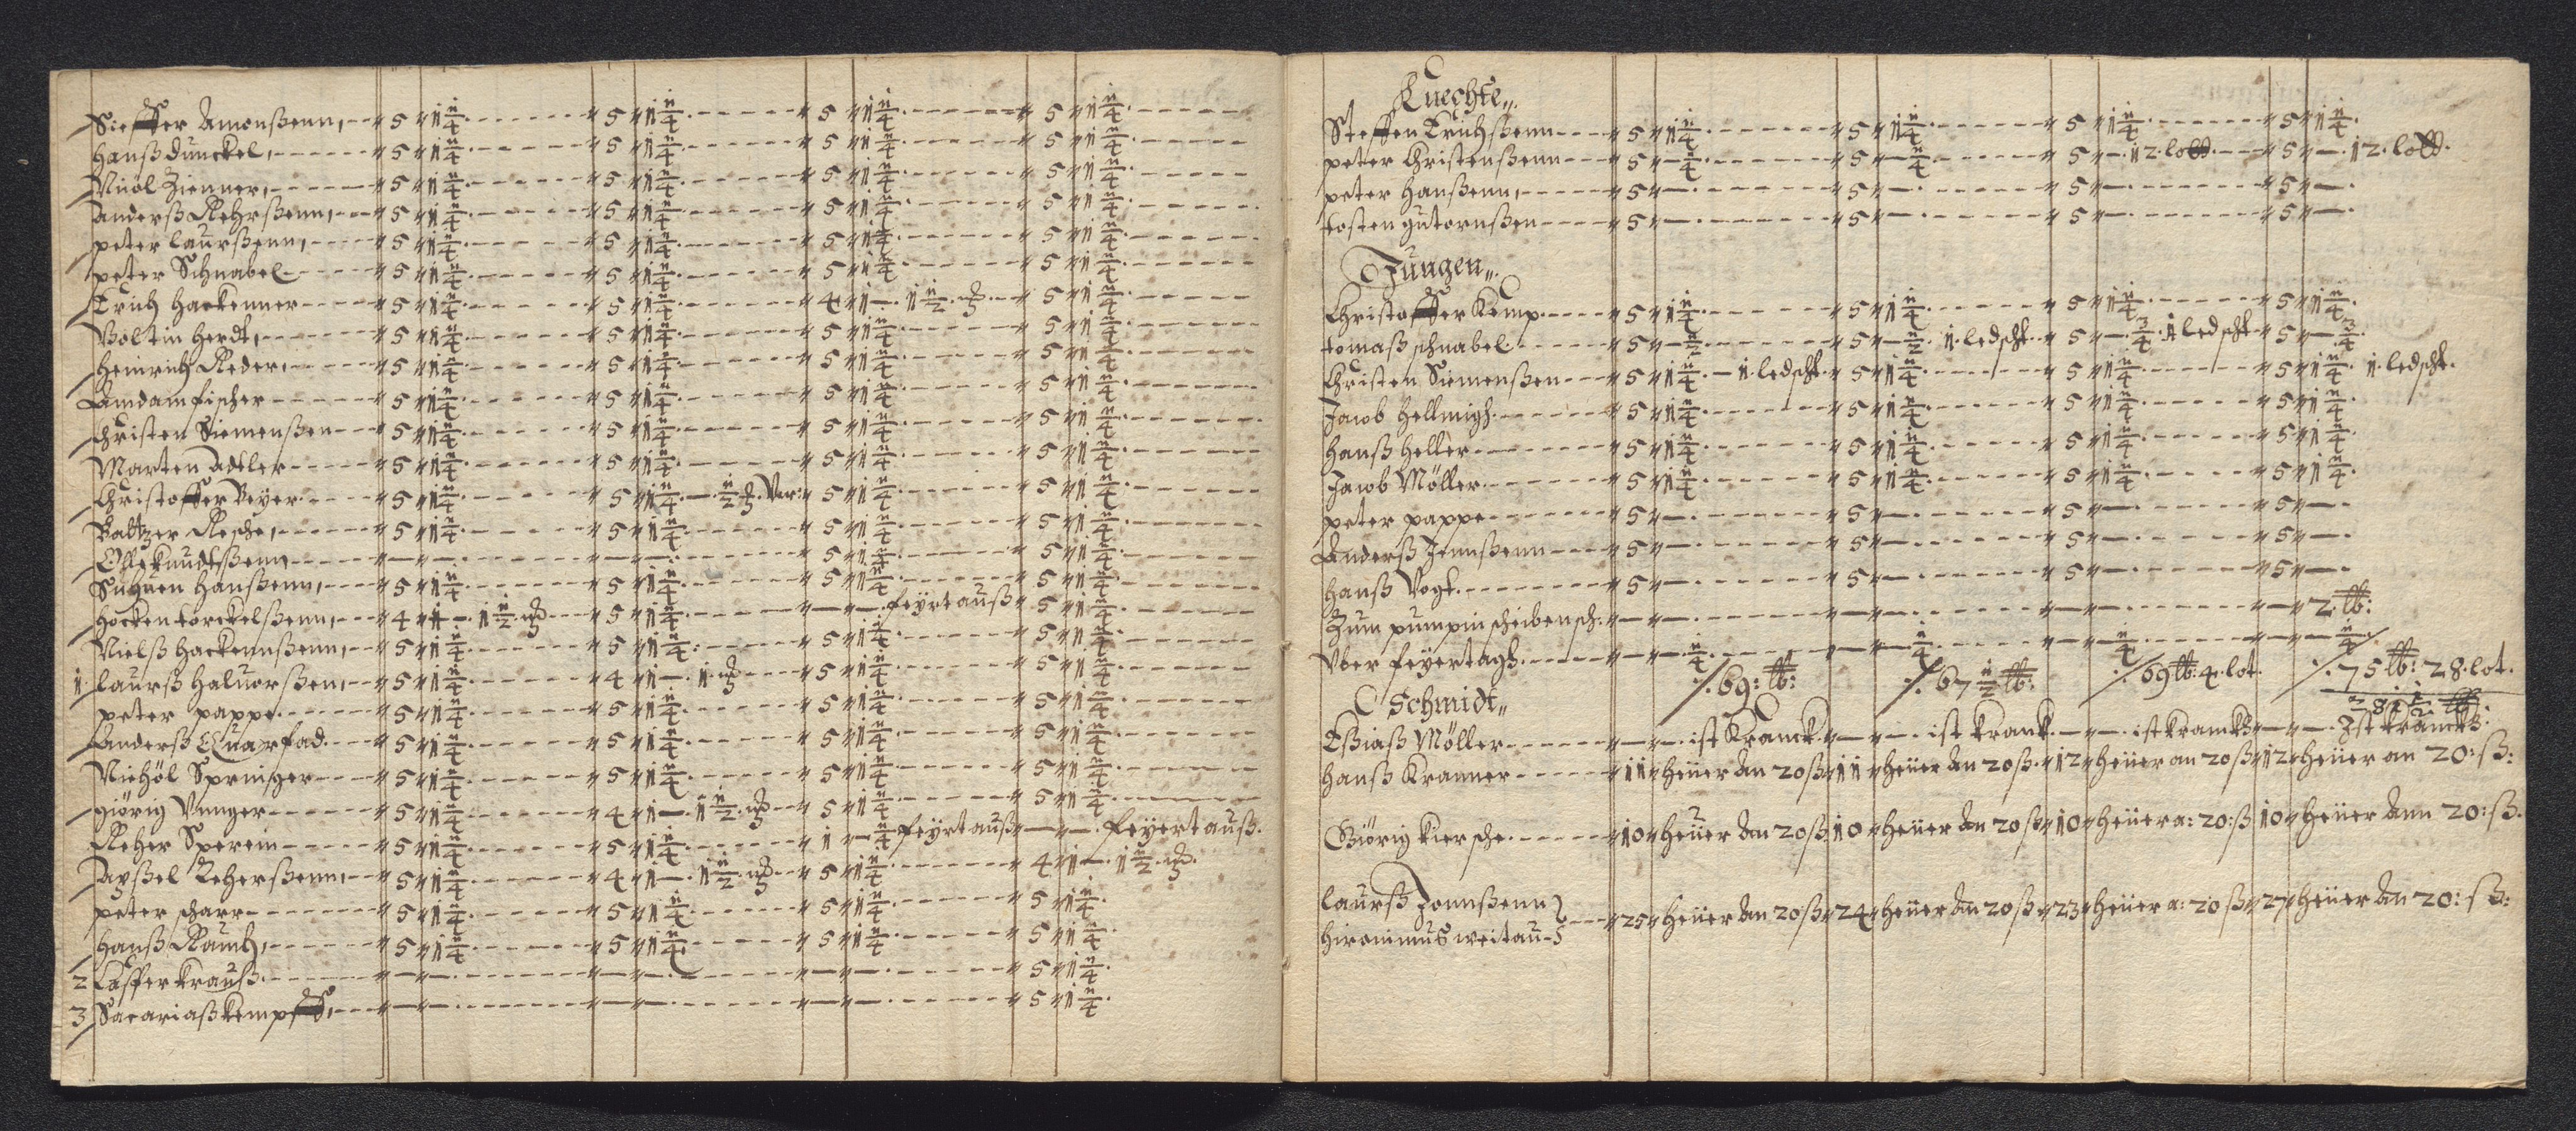 Sieffer Amonßenn, 5 1 1/4 5 1 1/4 5 1 1/4 5 1 1/4
Hanß dunckel, 5 1 1/4 5 1 1/4 5 1 1/4 5 1 1/4
Niiol Zienner, 5 1 1/4 5 1 1/4 5 1 1/4 5 1 1/4
Anderß Rehrßenn, 5 1 1/4 5 1 1/4 5 1 1/4 5 1 1/4
peter laurßenn, 5 1 1/4 5 1 1/4 5 1 1/4 5 1 1/4
peter Schnabel 5 1 1/4 5 1 1/4 5 1 1/4 5 1 1/4
Erich Hackenner 5 1 1/4 5 1 1/4 4 1 — 1 1/2 5 1 1/4
Voltin Herdt, 5 1 1/4 5 1 1/4 5 1 1/4 5 1 1/4
Heinrich Reder, 5 1 1/4 5 1 1/4 5 1 1/4 5 1 1/4
Amdam fischer 5 1 1/4 5 1 1/4 5 1 1/4 5 1 1/4
Christen Siemenßen 5 1 1/4 5 1 1/4 5 1 1/4 5 1 1/4
Marten Adtler 5 1 1/4 5 1 1/4 5 1 1/4 5 1 1/4
Christoffer Beyer 5 1 1/4 5 1 1/4 — 1/2 5 1 1/4 5 1 1/4
Baltzer Resche, 5 1 1/4 5 1 1/4 5 1 1/4 5 1 1/4
Olle knudtßenn — — — — 5 1 1/4 5 1 1/4
Suhnen Hanßenn, 5 1 1/4 5 1 1/4 5 1 1/4 5 1 1/4
Hocken torckelßenn, 4 1 — 1 1/2 5 1 1/4 — — feyrt auß 5 1 1/4
Nielß Hackennßenn, 5 1 1/4 5 1 1/4 5 1 1/4 5 1 1/4
1 laurß Haluorßen, 5 1 1/4 4 1 — 1 5 1 1/4 5 1 1/4
peter pappe 5 1 1/4 5 1 1/4 5 1 1/4 5 1 1/4
Anderß Quarfad 5 1 1/4 5 1 1/4 5 1 1/4 5 1 1/4
Niehöl Springer 5 1 1/4 5 1 1/4 5 1 1/4 5 1 1/4
giörig Vnnger 5 1 1/4 4 1 — 1 1/2 5 1 1/4 5 1 1/4
Reher Sperein 5 1 1/4 5 1 1/4 1 — 1/4 feyrt auß — — feyert auß.
Ayßel Reherßenn, 5 1 1/4 4 1 — 1 1/2 5 1 1/4 4 1 — 1 1/2
peter scharr 5 1 1/4 5 1 1/4 5 1 1/4 5 1 1/4
Hanß Rauch, 5 1 1/4 5 1 1/4 5 1 1/4 5 1 1/4
2 Casper krauß — — — — — — 5 1 1/4
3 Sacariaß kempff, — — — — — — 5 1 1/4
Knechte,,
Steffen Erichßenn 5 1 1/4 5 1 1/4 5 1 1/4 5 1 1/4
peter Christenßenn 5 — 1/4 5 — 1/4 5 — 12 lodd 5 — 12 lodd.
peter Hanßenn, 5 — 5 — 5 — 5 —
tosten gutornßen 5 — 5 — 5 — 5 —
Jungen,,
Christoffer Kemp 5 1 1/4 5 1 1/4 5 1 1/4 5 1 1/4
tomaß schnabel 5 — 1/2 5 — 1/2 1 ledscht 5 — 3/4 1 ledscht 5 — 3/4
Christen Siemenßen 5 1 1/4 — 1 ledscht 5 1 1/4 5 1 1/4 5 1 1/4 1 ledscht.
Jacob Hellmigh 5 1 1/4 5 1 1/4 5 1 1/4 5 1 1/4
Hanß Heller 5 1 1/4 5 1 1/4 5 1 1/4 5 1 1/4
Jacob Möller 5 1 1/4 5 1 1/4 5 1 1/4 5 1 1/4
peter pappe 5 — 5 — 5 — 5 —
Anderß Jennßenn 5 — 5 — 5 — 5 —
Hanß Vogt 5 — 5 — 5 — 5 —
Zum pumpin scheiben sch. — — — — — — — 2 lb:
Vber feyertagh — — 1/4 — — 1/4 — — 1/4 — — 1/4
69: lb: 67 1/2 lb: 69 lb: 4 lot. 75 lb: 28 lot.
281 1/2 lb.
Schmidt,,
Eßiaß Möller — — ist Kranck — — ist kranck — — ist kranckh — — Ist kranckh.
Hanß Kranner 11 Heuer An 20 ß 11 Heuer An 20 ß 12 Heuer an 20 ß 12 Heuer an 20: ß:
Giörig kiersche 10 Heuer An 20 ß 10 Heuer An 20 ß 10 Heuer a: 20: ß 10 Heuer Ann 20: ß.
laurß Jonnßenn
Hironimus weitau 25 Heuer An 20 ß 24 Heuer An 20 ß 23 Heuer a: 20 ß 27 Heuer An 20: ß: